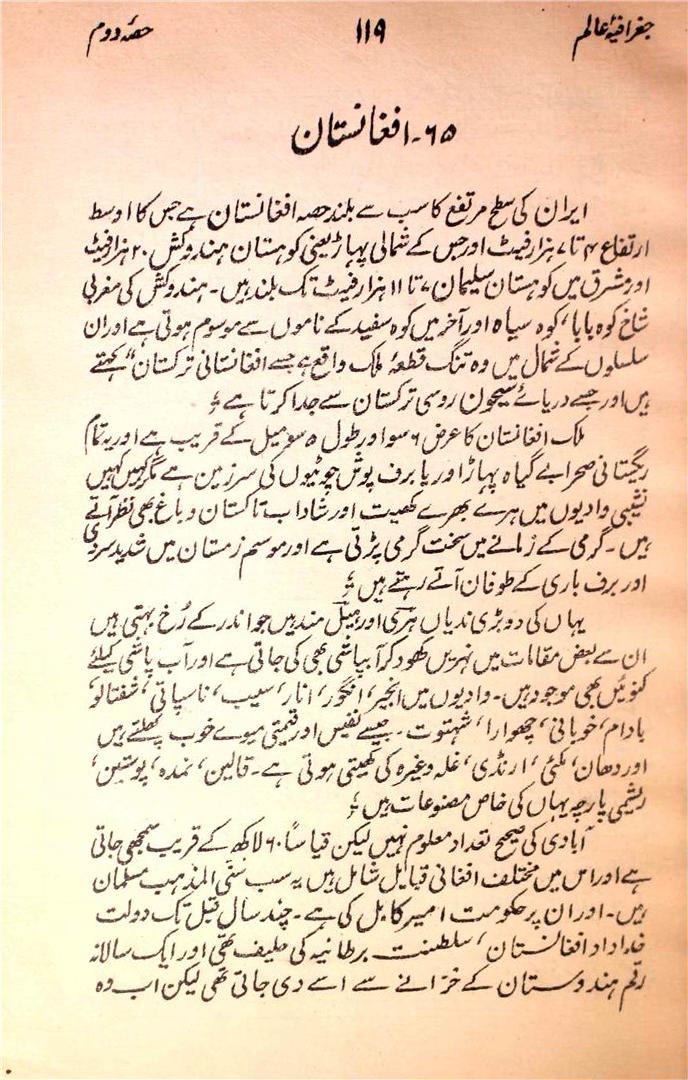 جغرافیۂ عالم ۱۱۹ حصۂ دوم
۶۵۔ افغانستان
ایران کی سطح مرتفع کا سب سے بلند حصہ افغانستان ہے جس کا اوسط
ارتفاع ۴ تا ۷ ہزار فیٹ اور جس کے شمالی پہاڑ یعنی کوہستان ہندوکُش ۲۰ ہزار فیٹ
اور مشرق میں کوہستان سلیمان ۷ تا ۱۱ ہزار فیٹ تک بلند ہیں۔ ہندوکش کی مغربی
شاخ کوہ بابا، کوہ سیاہ اور آخر میں کوہ سفید کے ناموں سے موسوم ہوتی ہے اور ان
سلسلوں کے شمال میں وہ تنگ قطعۂ ملک واقع ہے جسے افغانستانی ترکستان" کہتے
ہیں اور جسے دریائے سیحون روسی ترکستان سے جدا کرتا ہے ؛
ملک افغانستان کا عرض ۶ سو اور طول ۵ سو میل کے قریب ہے اور یہ تمام
ریگستانی صحرا بے گیاہ پہاڑ اور یا برف پوش چوٹیوں کی سرزمین ہے مگر کہیں کہیں
نشیبی وادیوں میں ہرے بھرے کھیت اور شاداب تاکستان و باغ بھی نظر آتے
ہیں۔ گرمی کے زمانے میں سخت گرمی پڑتی ہے اور موسم زمستان میں شدید سردی
اور برف باری کے طوفان آتے رہتے ہیں ؛
یہاں کی دو بڑی ندیاں ہری اور ہیل مند ہیں جو اندر کے رُخ بہتی ہیں
ان سے بعض مقامات میں نہریں کھود کر آبپاشی بھی کی جاتی ہے اور آب پاشی کیلئے
کنوئیں بھی موجود ہیں۔ وادیوں میں انجیر، انگور، انار، سیب، ناسپاتی، شفتالو،
بادام، خوبانی، چھوارا، شہتوت۔ جیسے نفیس اور قیمتی میوے خوب پھلتے ہیں
اور دھان، مکئی، ارنڈی، غلہ وغیرہ کی کھیتی ہوتی ہے۔ قالین، نمدہ، پوستین،
ریشمی پارچہ یہاں کی خاص مصنوعات ہیں ؛
آبادی کی صحیح تعداد معلوم نہیں لیکن قیاساً ۶۰ لاکھ کے قریب سمجھی جاتی
ہے اور اس میں مختلف افغانی قبایل شامل ہیں یہ سب سنّی المذہب مسلمان
ہیں۔ اور ان پر حکومت امیر کابل کی ہے۔ چند سال قبل تک دولت
خداداد افغانستان، سلطنت برطانیہ کی حلیف تھی اور ایک سالانہ
رقم ہندوستان کے خزانے سے اسے دی جاتی تھی لیکن اب وہ